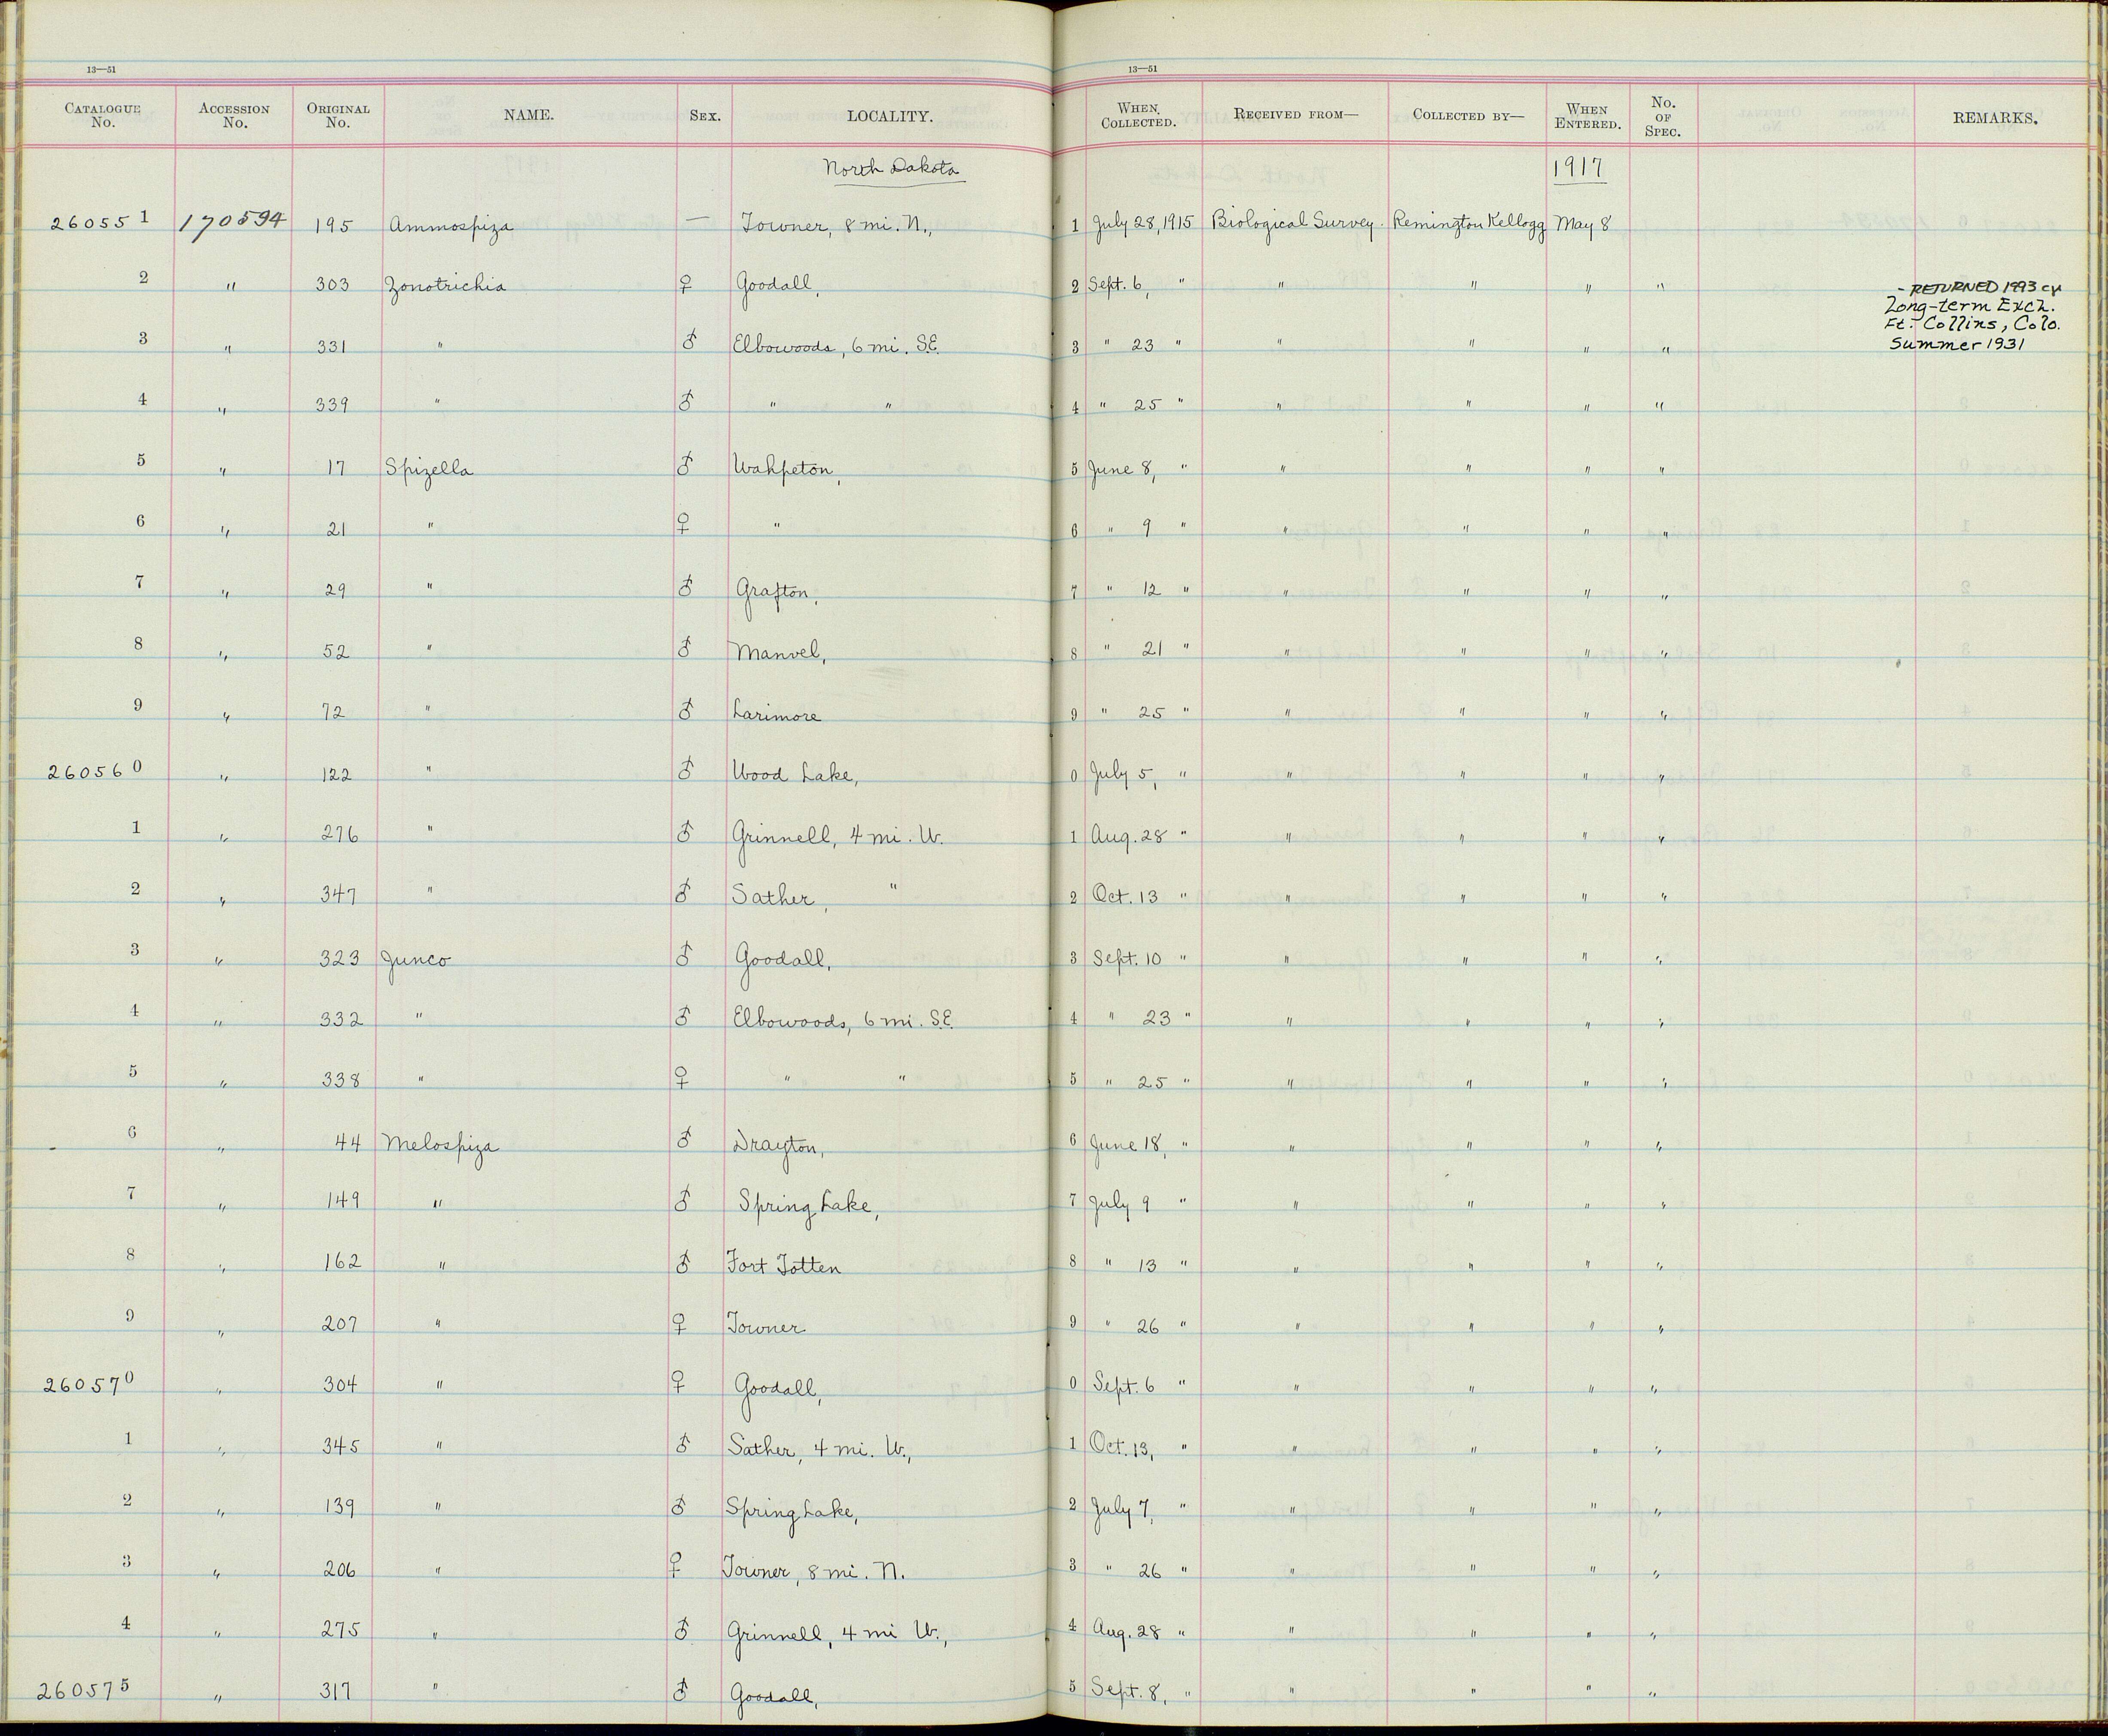 13—51
13—51
CATALOGUE No. ACCESSION No. ORIGINAL No. NAME. SEX. LOCALITY. WHEN COLLECTED. RECEIVED FROM— COLLECTED BY— WHEN ENTERED. No. OF SPEC. REMARKS.
North Dakota 1917
260551 170594 195 Ammospiza — Towner, 8 mi. N., 1 July 28, 1915 Biological Survey. Remington Kellogg May 8
2 " 303 Zonotrichia ♀ Goodall, 2 Sept. 6, " " " " " - RETURNED 1993 cy
Long-term Exch.
Ft. Collins, Colo.
Summer 1931
3 " 331 " ♂ Elbowoods, 6 mi. S.E. 3 " 23 " " " " "
4 " 339 " ♂ " " 4 " 25 " " " " "
5 " 17 Spizella ♂ Wahpeton, 5 June 8, " " " " "
6 " 21 " ♀ " 6 " 9 " " " " "
7 " 29 " ♂ Grafton, 7 " 12 " " " " "
8 " 52 " ♂ Manvel, 8 " 21 " " " " "
9 " 72 " ♂ Larimore 9 " 25 " " " " "
260560 " 122 " ♂ Wood Lake, 0 July 5, " " " " "
1 " 276 " ♂ Grinnell, 4 mi. W. 1 Aug. 28 " " " " "
2 " 347 " ♂ Sather, " 2 Oct. 13 " " " " "
3 " 323 Junco ♂ Goodall, 3 Sept. 10 " " " " "
4 " 332 " ♂ Elbowoods, 6 mi. S.E. 4 " 23 " " " " "
5 " 338 " ♀ " " 5 " 25 " " " " "
6 " 44 Melospiza ♂ Drayton, 6 June 18, " " " " "
7 " 149 " ♂ Spring Lake, 7 July 9 " " " " "
8 " 162 " ♂ Fort Totten 8 " 13 " " " " "
9 " 207 " ♀ Towner 9 " 26 " " " " "
260570 " 304 " ♀ Goodall, 0 Sept. 6 " " " " "
1 " 345 " ♂ Sather, 4 mi. W., 1 Oct. 13, " " " " "
2 " 139 " ♂ Spring Lake, 2 July 7, " " " " "
3 " 206 " ♀ Towner, 8 mi. N. 3 " 26 " " " " "
4 " 275 " ♂ Grinnell, 4 mi W., 4 Aug. 28 " " " " "
260575 " 317 " ♂ Goodall, 5 Sept. 8, " " " " "